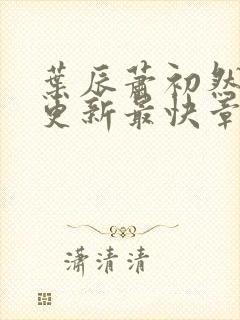 葉辰蕭初然
更新最快章
瀟清清